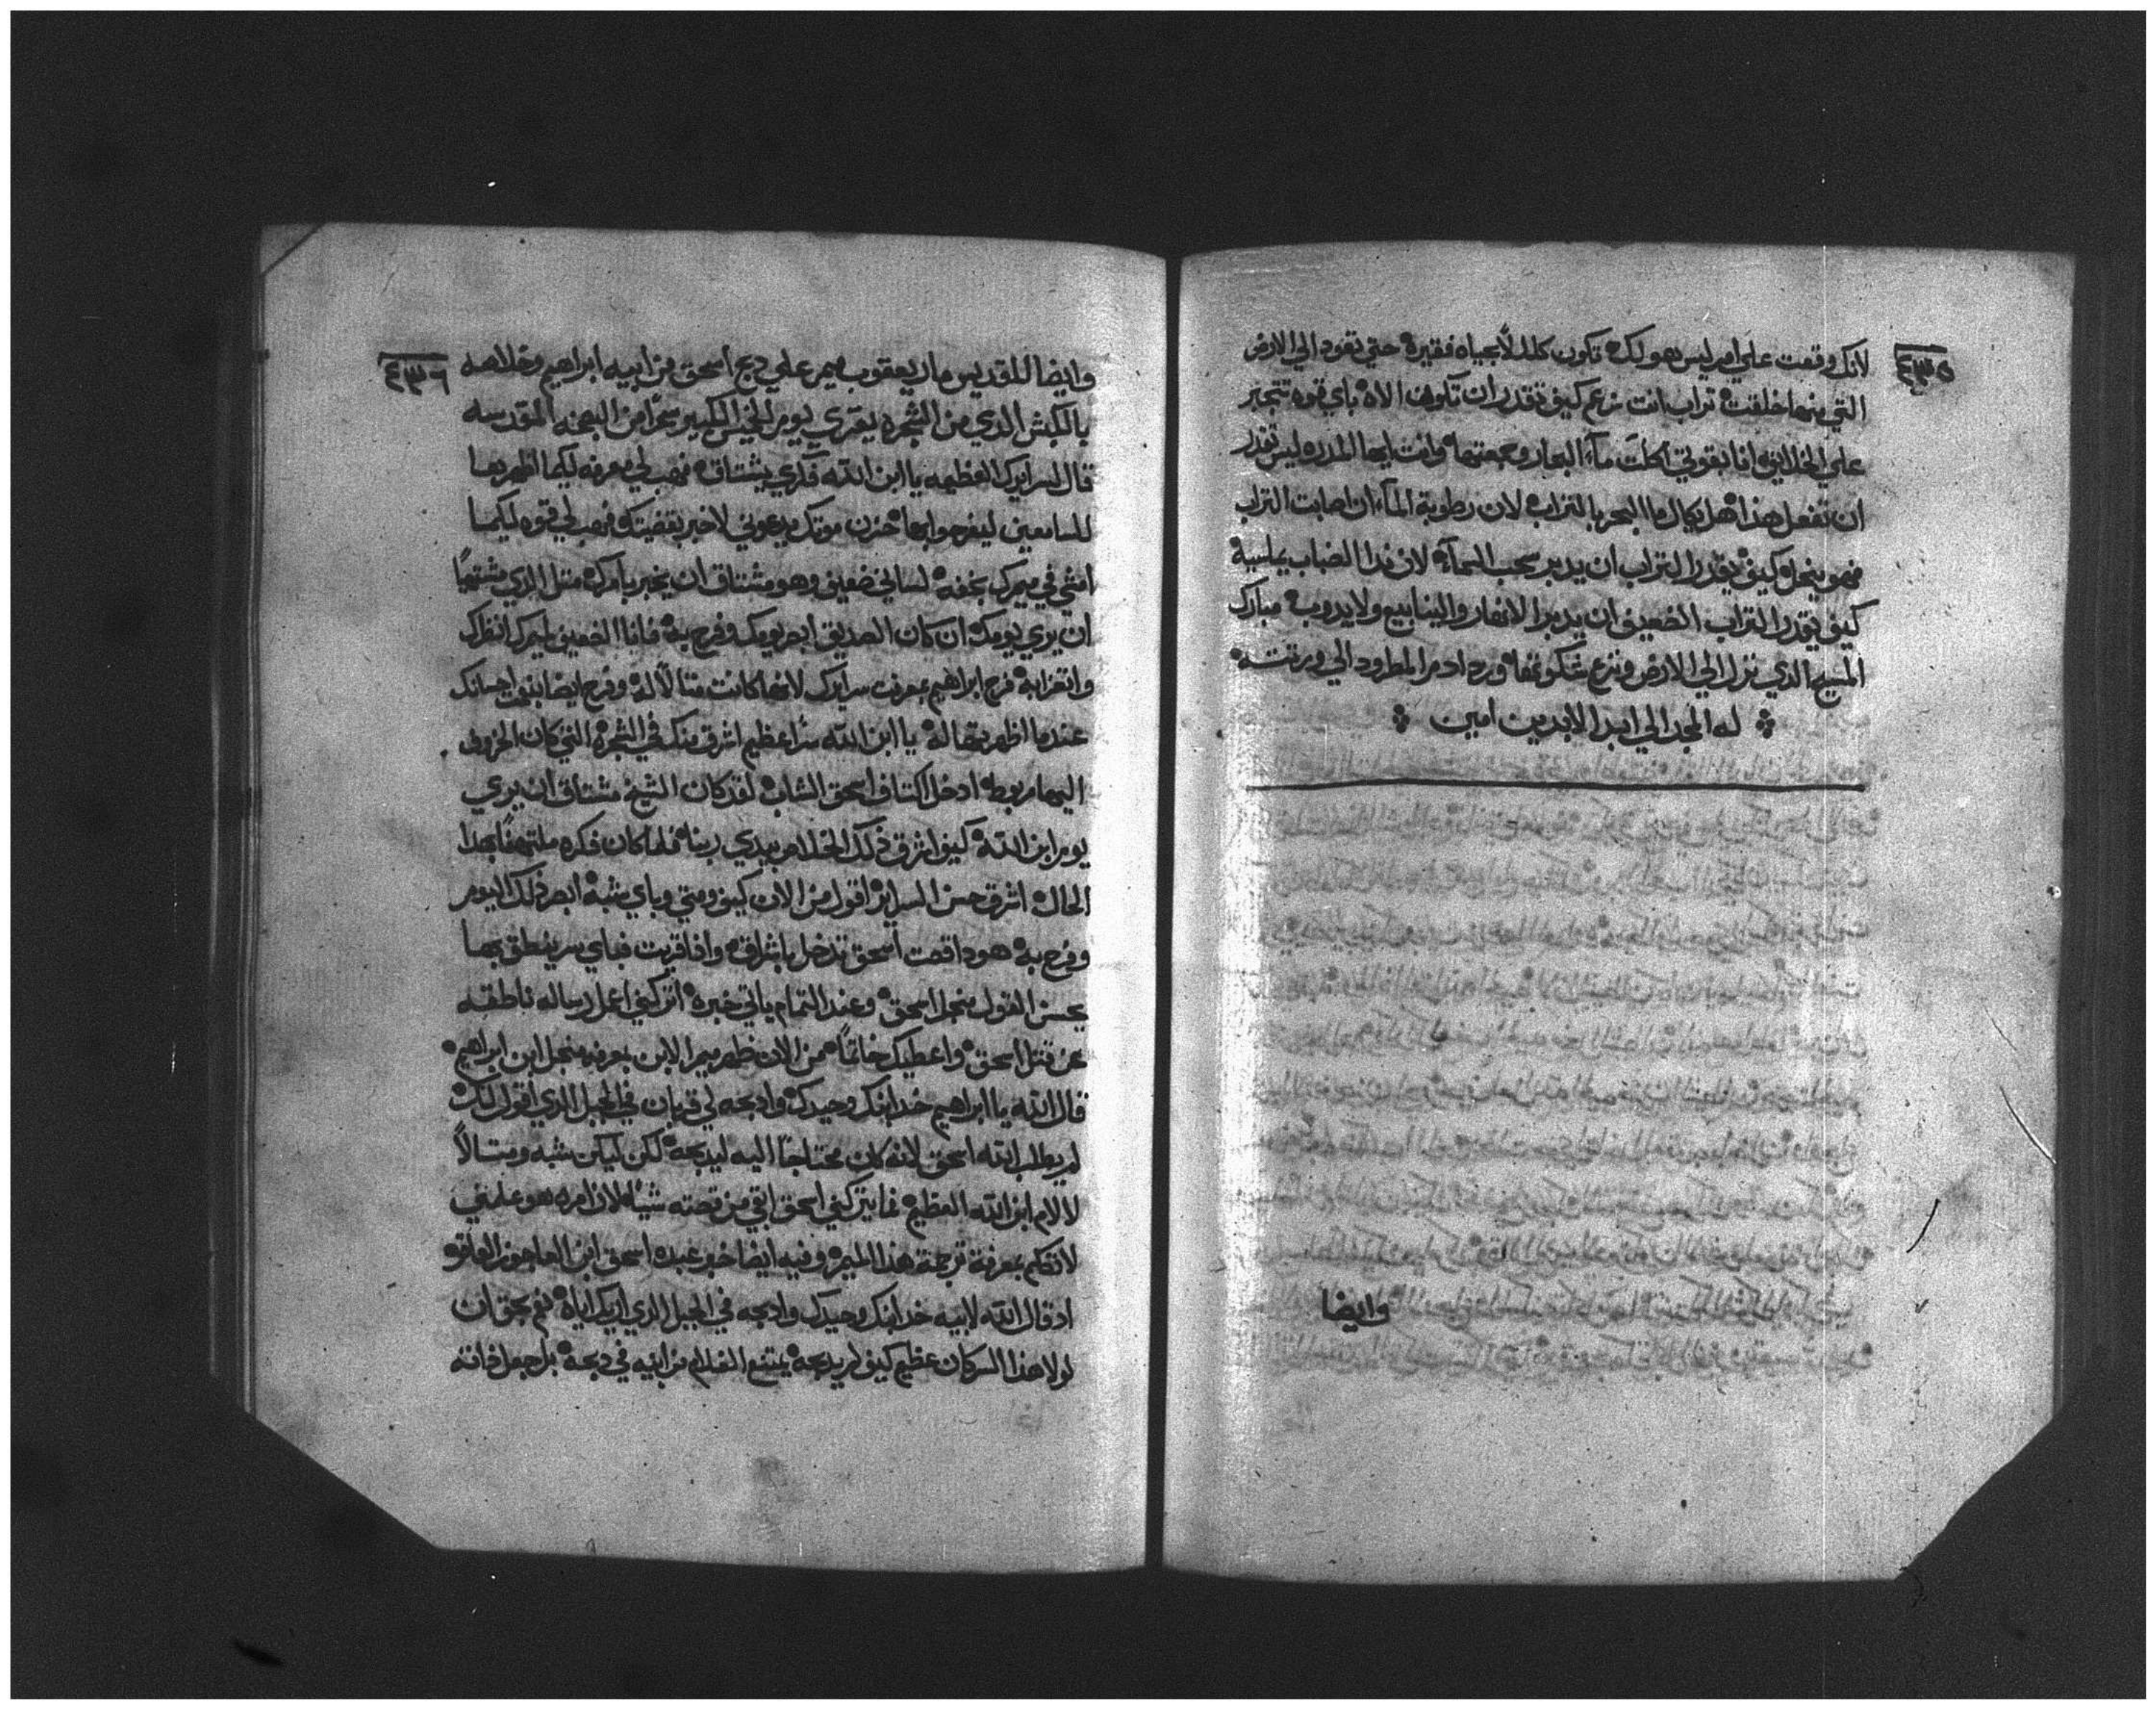 ٤٣٥
لانك وقعت علي امر ليس هو لك تكون كلك لا بحياه فقيرة حتي تعود الي الارض
التي منها خلقت تراب انت تزعم كيف تقدر ان تكون الاه باي قوه تتجبر
علي الخلائق انا بقوتي اكلت مآء البحار وجمعتها وانت ايها المدره ليس تقدر
ان تفعل هذا هل يكال ما البحر بالتراب لان رطوبة المآء ان اصابت التراب
فهو ينحل كيف يقدر التراب ان يدبر سحب السمآء لان ندا الضباب
كيف يقدر التراب الضعيف ان يدبر الانهار والينابيع ولا يدوب مبارك
المسيح الذي نزل الي الارض ونزع ورد ادم المطرود الي ورثته
له المجد الي ابد الابدين امين
وايضا
٤٣٦
وايضا للقديس مار يعقوب ميمر علي دبح اسحق من ابيه ابراهيم وخلاصه
بالكبش الذي من الشجره يقري يوم الخميس الكبير سحرا من البصخه المقدسه
قال لسرايرك العظيمه يا ابن الله فكري يشتاق فهب لي معرفه ليكما اظهرها
للسامعين ليفرحوا بها حزن موتك يدعوني لاخبر بقضيتك فهب لي قوه ليكما
امشي في ميمرك بخفه لساني ضعيف وهو مشتاق ان يخبر بامرك متل الذي مشتهيا
ان يري يومك ان كان الصديق ابصر يومك وفرح به فانا الضعيف لميمرك انظرك
وانعزا به فرح ابراهيم بمعرفت سرايرك لانها كانت متالا له وفرح ايضا احسانك
عندما اظهرتها له يا ابن الله سرا عظيم اشرق منك في الشجرة التي كان الخروف
اليها مربوط ادخل اكتاف اسحق الشاب لقد كان الشيخ مشتاق ان يري
يوم ابن الله كيف اشرق ذلك الخلاص بيدي ربنا فلما كان فكره ملتهفا بهذا
الحال اشرق حسن السراير اقول من الان كيف ومتي وباي شبه ابصر ذلك اليوم
وفرح به هودا قصت اسحق تدخل باشراق وادا قريت فباي سر ينطق بها
يحسن القول منجل اسحق وعند التمام ياتي خبره اتركني اعمل رساله ناطقه
عن قتل اسحق واعطيك خاتما من الان ظهر ميمر الابن بمعرفه منجل ابن ابراهيم
قال الله يا ابراهيم خد ابنك وحيدك وادبحه لي قربان في الجبل الذي اقول لك
لم يطلب الله اسحق لانه كان محتاجا اليه ليدبحه لكن ليكن شبه ومتالا
لالام ابن الله العظيم فما يتركني اسحق ابقي من قصته شيئا لان امره هو علمني
لاتكلم بمعرفة ترجمة هذا الميمر وفيه ايضا خبر عبده اسحق ابن العاجوز العاقره
اد قال الله لابيه خد ابنك وحيدك وادبحه في الجبل الذي اريك اياه نعم بحق ان
لولا هذا السر كان عظيم كيف لم يدبحه يمتنع الغلام من ابيه في دبحه بل جعل داته